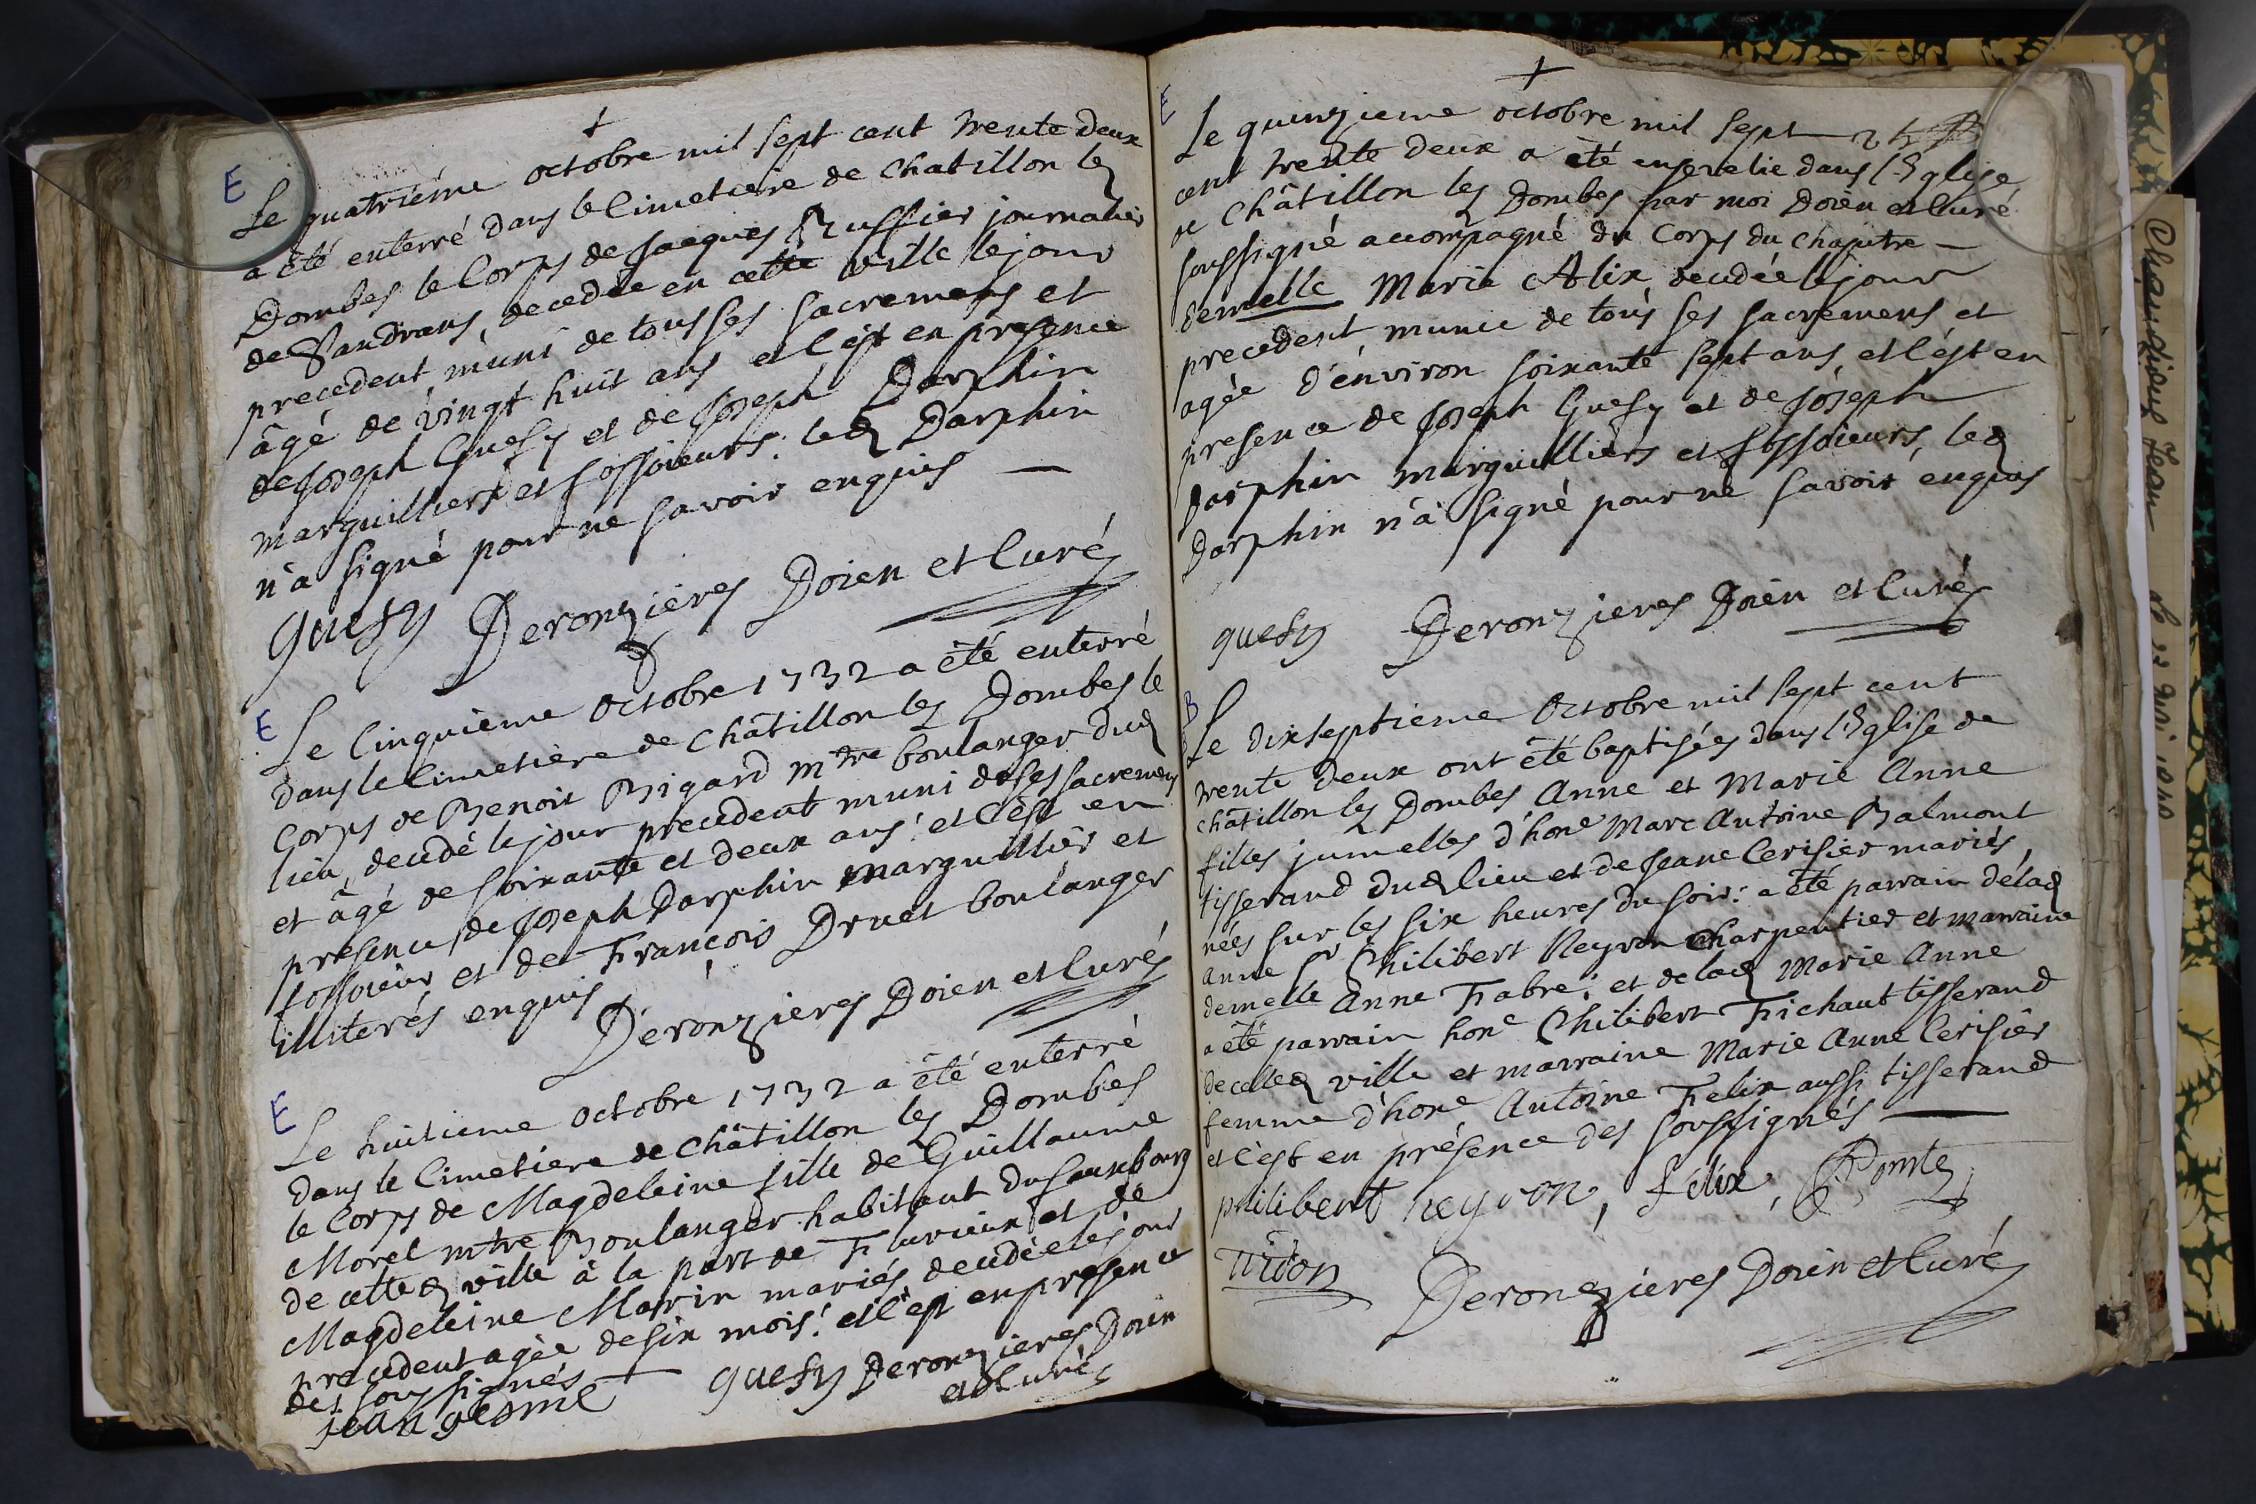 †
E
Le quatriéme octobre mil sept cent trente deux
a été enterré dans le Cimetiere de Chatillon les
Dombes le Corps de Jacques Buffier journalier
de Sandrans, decedée en cette ville le jour
precedent, muni de tous ses sacremens et
âgé de vingt huit ans et c'est en presence
de Joseph Guesy et de Joseph Darphin
marguilliers et fossoieurs: led Darphin
n'a signé pour ne savoir enquis —
guesy Deronzieres Doien et Curé
E
Le Cinquieme Octobre 1732 a été enterré
dans le Cimetiere de Châtillon les Dombes le
Corps de Benoit Bigard mtre boulanger dud
lieu, decedé le jour precedent muni de ses sacremens
et âgé de soixante et deux ans: et c'est en
presence de Joseph Darphin marguillier et
fossoieur et de François Druet boulanger
illiterés enquis
Deronzieres Doien et Curé
E
Le huitieme octobre 1732 a été enterré
dans le Cimetiere de Châtillon les Dombes
le Corps de Magdeleine fille de Guillaume
Morel mtre Boulanger habitant du fauxbourg
de cetted ville à la part de Flurieux et de
Magdeleine Marin mariés decedée le jour
precedent agée de six mois: et c'est en presence
des soussignés
guesy Deronzieres Doien
et Curé
†
E
Le quinzieme octobre mil sept
cent trente deux a été ensevelie dans l'Eglise
de Châtillon les Dombes par moi Doien et Curé
soussigné accompagné du Corps du Chapitre —
demelle Marie Alix decedée le jour
precedent munie de tous ses sacremens et
agée d'environ soixante sept ans et c'est en
presence de Joseph Guesy et de Joseph
Darphin marguilliers et fossoieurs, led
Darphin n'a signé pour ne savoir enquis
guesy Deronzieres Doien et Curé
B
Le dixseptieme Octobre mil sept cent
trente deux ont été baptisées dans l'Eglise de
Châtillon les Dombes Anne et Marie Anne
filles jumelles d'hone Marc Antoine Balmont
tisserand dud lieu et de Jeane Cerisier mariés,
nées sur les six heures du soir: a été parrain de lad
Anne Sr Philibert Reyron Charpentier et marraine
demelle Anne Fabre; et de lad Marie Anne
a été parrain hone Philibert Fichaut tisserand
de cetted ville et marraine Marie Anne Cerisier
femme d'hone Antoine Felix aussi tisserand
et c'est en présence des soussignés —
philibert reyron, felix,
Deronezieres Doien et Curé